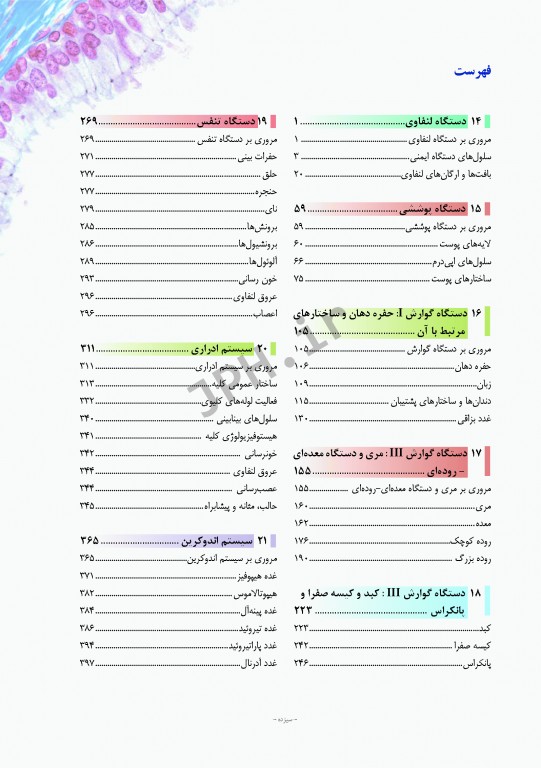 فهرست
۱۴ دستگاه لنفاوی ........ ۱
مروری بر دستگاه لنفاوی ........ ۱
سلول‌های دستگاه ایمنی ........ ۳
بافت‌ها و ارگان‌های لنفاوی ........ ۲۰
۱۵ دستگاه پوششی ........ ۵۹
مروری بر دستگاه پوششی ........ ۵۹
لایه‌های پوست ........ ۶۰
سلول‌های اپی‌درم ........ ۶۶
ساختارهای پوست ........ ۷۵
۱۶ دستگاه گوارش I: حفره دهان و ساختارهای
مرتبط با آن ........ ۱۰۵
مروری بر دستگاه گوارش ........ ۱۰۵
حفره دهان ........ ۱۰۶
زبان ........ ۱۰۹
دندان‌ها و ساختارهای پشتیبان ........ ۱۱۵
غدد بزاقی ........ ۱۳۰
۱۷ دستگاه گوارش III : مری و دستگاه معده‌ای
- روده‌ای ........ ۱۵۵
مروری بر مری و دستگاه معده‌ای-روده‌ای ........ ۱۵۵
مری ........ ۱۶۰
معده ........ ۱۶۲
روده کوچک ........ ۱۷۶
روده بزرگ ........ ۱۹۰
۱۸ دستگاه گوارش III : کبد و کیسه صفرا و
پانکراس ........ ۲۲۳
کبد ........ ۲۲۳
کیسه صفرا ........ ۲۴۲
پانکراس ........ ۲۴۶
۱۹ دستگاه تنفس ........ ۲۶۹
مروری بر دستگاه تنفس ........ ۲۶۹
حفرات بینی ........ ۲۷۱
حلق ........ ۲۷۷
حنجره ........ ۲۷۷
نای ........ ۲۷۹
برونش‌ها ........ ۲۸۵
برونشیول‌ها ........ ۲۸۶
آلوئول‌ها ........ ۲۸۹
خون رسانی ........ ۲۹۳
عروق لنفاوی ........ ۲۹۶
اعصاب ........ ۲۹۶
۲۰ سیستم ادراری ........ ۳۱۱
مروری بر سیستم ادراری ........ ۳۱۱
ساختار عمومی کلیه ........ ۳۱۳
فعالیت لوله‌های کلیوی ........ ۳۳۲
سلول‌های بینابینی ........ ۳۴۰
هیستوفیزیولوژی کلیه ........ ۳۴۱
خونرسانی ........ ۳۴۲
عروق لنفاوی ........ ۳۴۴
عصب‌رسانی ........ ۳۴۴
حالب، مثانه و پیشابراه ........ ۳۴۵
۲۱ سیستم اندوکرین ........ ۳۶۵
مروری بر سیستم اندوکرین ........ ۳۶۵
غده هیپوفیز ........ ۳۷۱
هیپوتالاموس ........ ۳۸۲
غده پینه‌آل ........ ۳۸۴
غده تیروئید ........ ۳۸۶
غدد پاراتیروئید ........ ۳۹۴
غدد آدرنال ........ ۳۹۷
- سیزده -
JPH.ir